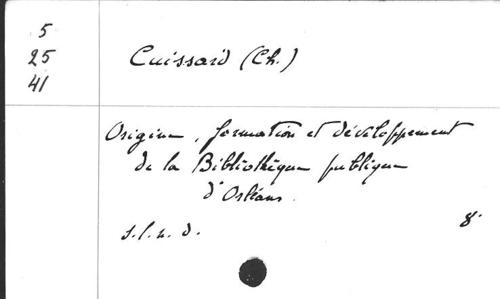 5
25
41
Cuissard (Ch.)
Origine, formation et développement
de la Bibliothèque publique
d'Orléans.
s.l.n.d.
8°